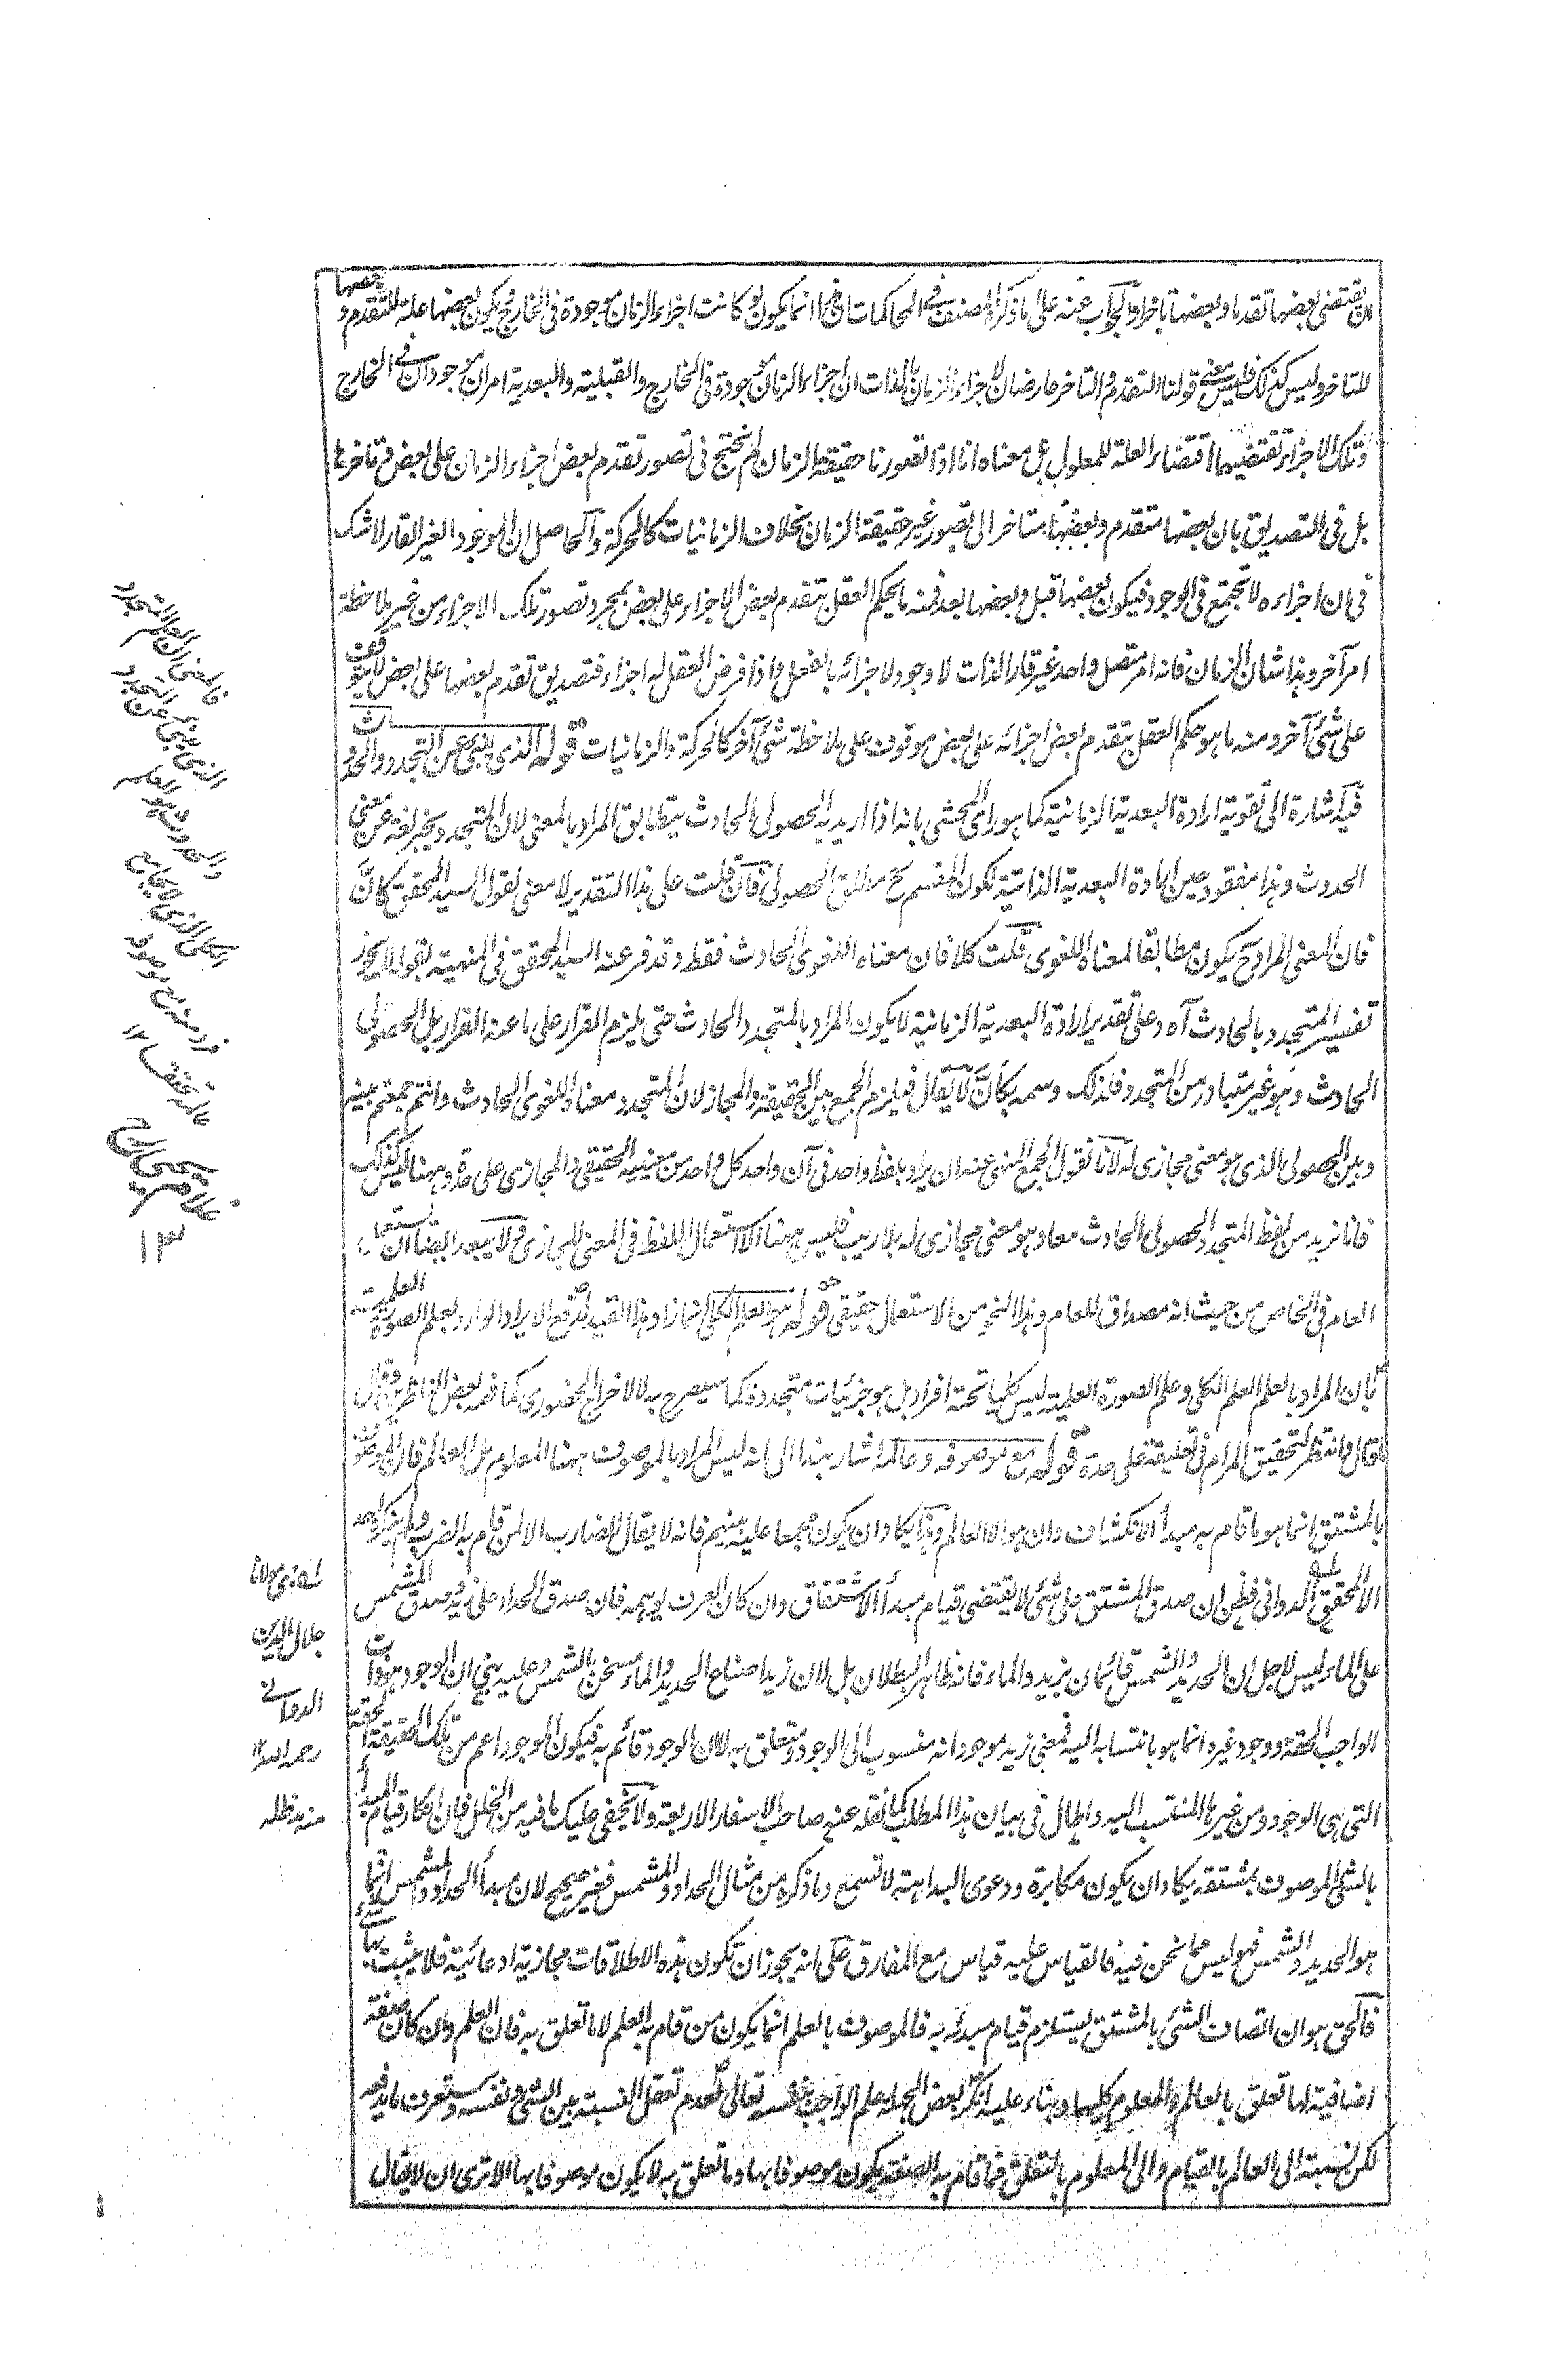 ان يقتضى بعضها تقدما وبعضها تاخرا والجواب عنه على ما ذكر المصنف فى المحاكمات ان هذا انما يكون لو كانت اجزاء الزمان موجودة فى الخارج ويكون بعضها علة للتقدم وبعضها
للتاخر وليس كذلك فليس معنى قولنا التقدم والتاخر عارضان لاجزاء الزمان بالذات ان اجزاء الزمان موجودة فى الخارج والقبلية والبعدية امران موجودان فى الخارج
وتلك الاجزاء تقتضيهما اقتضاء العلة للمعلول بل معناه انا اذا تصورنا حقيقة الزمان لم نحتج فى تصور تقدم بعض اجزاء الزمان على بعض وتاخرها
بل فى التصديق بان بعضها متقدم وبعضها متاخر الى تصور غير حقيقة الزمان بخلاف الزمانيات كالحركة والحاصل ان الموجود الغير القار لا شك
فى ان اجزاءه لا تجتمع فى الوجود فيكون بعضها قبل وبعضها بعد فمنه ما يحكم العقل بتقدم بعض الاجزاء على بعض بمجرد تصور تلك الاجزاء من غير ملاحظة
امر آخر وهذا شان الزمان فانه امر متصل واحد غير قار الذات لا وجود لاجزائه بالفعل واذا فرض العقل له اجزاء فتصديق تقدم بعضها على بعض لا يتوقف
على شئ آخر ومنه ما هو حكم العقل بتقدم بعض اجزائه على بعض موقوف على ملاحظة شئ آخر كالحركة والزمانيات قوله الذى ينبئ عن التجدد والحدوث
فيه اشارة الى تقوية ارادة البعدية الزمانية كما هو راى المحشى بانه اذا اريد به الحصولى الحادث يتطابق المراد بالمعنى لان المتجدد يخبر لغة عن معنى
الحدوث وهذا مفقود حين ارادة البعدية الذاتية لكون المقسم ح مطلق الحصولى فان قلت على هذا التقدير لا معنى لقول السيد المحقق كانَّ
فان المعنى المراد ح يكون مطابقا لمعناه اللغوى قلت كلا فان معناه اللغوى الحادث فقط وقد فر عنه السيد المحقق فى المنهية بقوله لا يجوز
تفسير المتجدد بالحادث آه وعلى تقدير ارادة البعدية الزمانية لا يكون المراد بالمتجدد الحادث حتى يلزم القرار على ما عنه الفرار بل الحصولى
الحادث وهو غير متبادر من المتجدد فلذلك وسمه بكانَّ لا يقال فيلزم الجمع بين الحقيقة والمجاز لان المتجدد معناه اللغوى الحادث وانتم جمعتم بينه
وبين الحصولى الذى هو معنى مجازى له لانا نقول الجمع المنهى عنه ان يراد بلفظ واحد فى آن واحد كل واحد من معنييه الحقيقى والمجازى على حدة وههنا ليس كذلك
فانا نريد من لفظ المتجدد الحصولى الحادث معا وهو معنى مجازى له بلا ريب فليس ههنا الا استعمال اللفظ فى المعنى المجازى ولا يبعد ايضا ان استعمال
العام فى الخاص من حيث انه مصداق للعام وهذا النحو من الاستعمال حقيقى قوله هو العلم الكلى انما زاد هذا القيد لدفع الايراد الوارد بعلم الصورة العلمية
بان المراد بالعلم العلم الكلى وعلم الصورة العلمية ليس كليا تحته افراد بل هو جزئيات متجددة كما سيصرح به لا لاخراج الحضورى كما فهمه بعض الناظرين وقال
ما قال وانتظر لتحقيق المرام فى تعليقة على حدة قوله مع موصوفه وعالمه اشار بهذا الى انه ليس المراد بالموصوف ههنا المعلوم بل العالم فان الموصوف
بالمشتق انما هو ما قام به مبدأ الانكشاف وان هو الا العالم وهذا يكاد ان يكون مجمعا عليه بينهم فانه لا يقال الضارب الا لمن قام به الضرب ولم ينكره احد
الا المحقق الدوانى فظن ان صدق المشتق على شئ لا يقتضى قيام مبدأ الاشتقاق وان كان العرف يوهمه فان صدق الحداد على زيد وصدق المشمس
على الماء ليس لاجل ان الحديد والشمس قائمان بزيد والماء فانه ظاهر البطلان بل لان زيدا صناع الحديد والماء مسخن بالشمس وعليه يبتنى ان الوجود هو ذات
الواجب الحقة ووجود غيره انما هو بانتسابه اليه فمعنى زيد موجود انه منسوب الى الوجود ومتعلق به لا ان الوجود قائم به فيكون الموجود اعم من تلك الحقيقة الحقة
التى هى الوجود ومن غيرها المنتسب اليه واطال فى بيان هذا المطلب كما نقله عنه صاحب الاسفار الاربعة ولا يخفى عليك ما فيه من الخلل فان انكار قيام المبدأ
بالشئ الموصوف بمشتقه يكاد ان يكون مكابرة ودعوى البداهة لا تسمع وما ذكره من مثال الحداد والمشمس فغير صحيح لان مبدأ الحداد والمشمس انما
هو الحديد والشمس فهو ليس مما نحن فيه فالقياس عليه قياس مع الفارق على انه يجوز ان تكون هذه الاطلاقات مجازية ادعائية فلا يثبت بها
فالحق هو ان اتصاف الشئ بالمشتق يستلزم قيام مبدئه به فالموصوف بالعلم انما يكون من قام به العلم لا ما تعلق به فان العلم وان كان صفة
اضافية لها تعلق بالعالم والمعلوم كليهما وبناء عليه انكر بعض الجهلة علم الواجب بنفسه تعالى لعدم تعقل النسبة بين الشئ ونفسه وستعرف ما يدفعه
لكن نسبته الى العالم بالقيام والى المعلوم بالتعلق فما قام به الصفة يكون موصوفا بها وما تعلق به لا يكون موصوفا بها الا ترى ان لا يقال
فالمعنى ان العلم المتجدد
الذى ينبئ عن التجدد
والحدوث هو العلم
الكلى الذى
فرد منه مع موصوفه
عالمه تحقق ١٢
١٢
اى مولانا
جلال الدين
الدوانى
رحمه الله ١٢
منه مد ظله